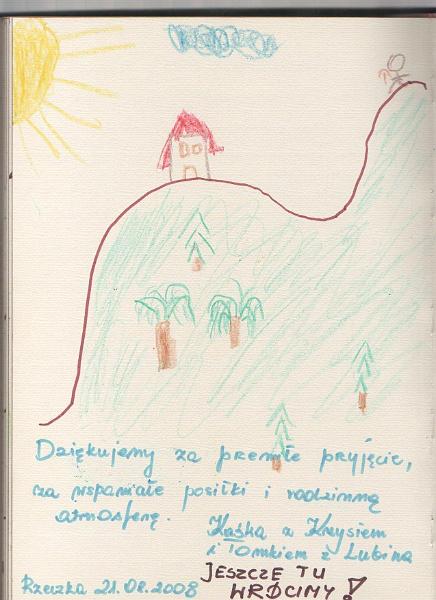 Dziękujemy za premiłe pryjęcie,
za wspaniałe posiłki i rodzinną
atmosferę.
Kaśka z Krysiem
i Tomkiem z Lubina
JESZCZE TU
WRÓCIMY!
Rzeczka 21.08.2008